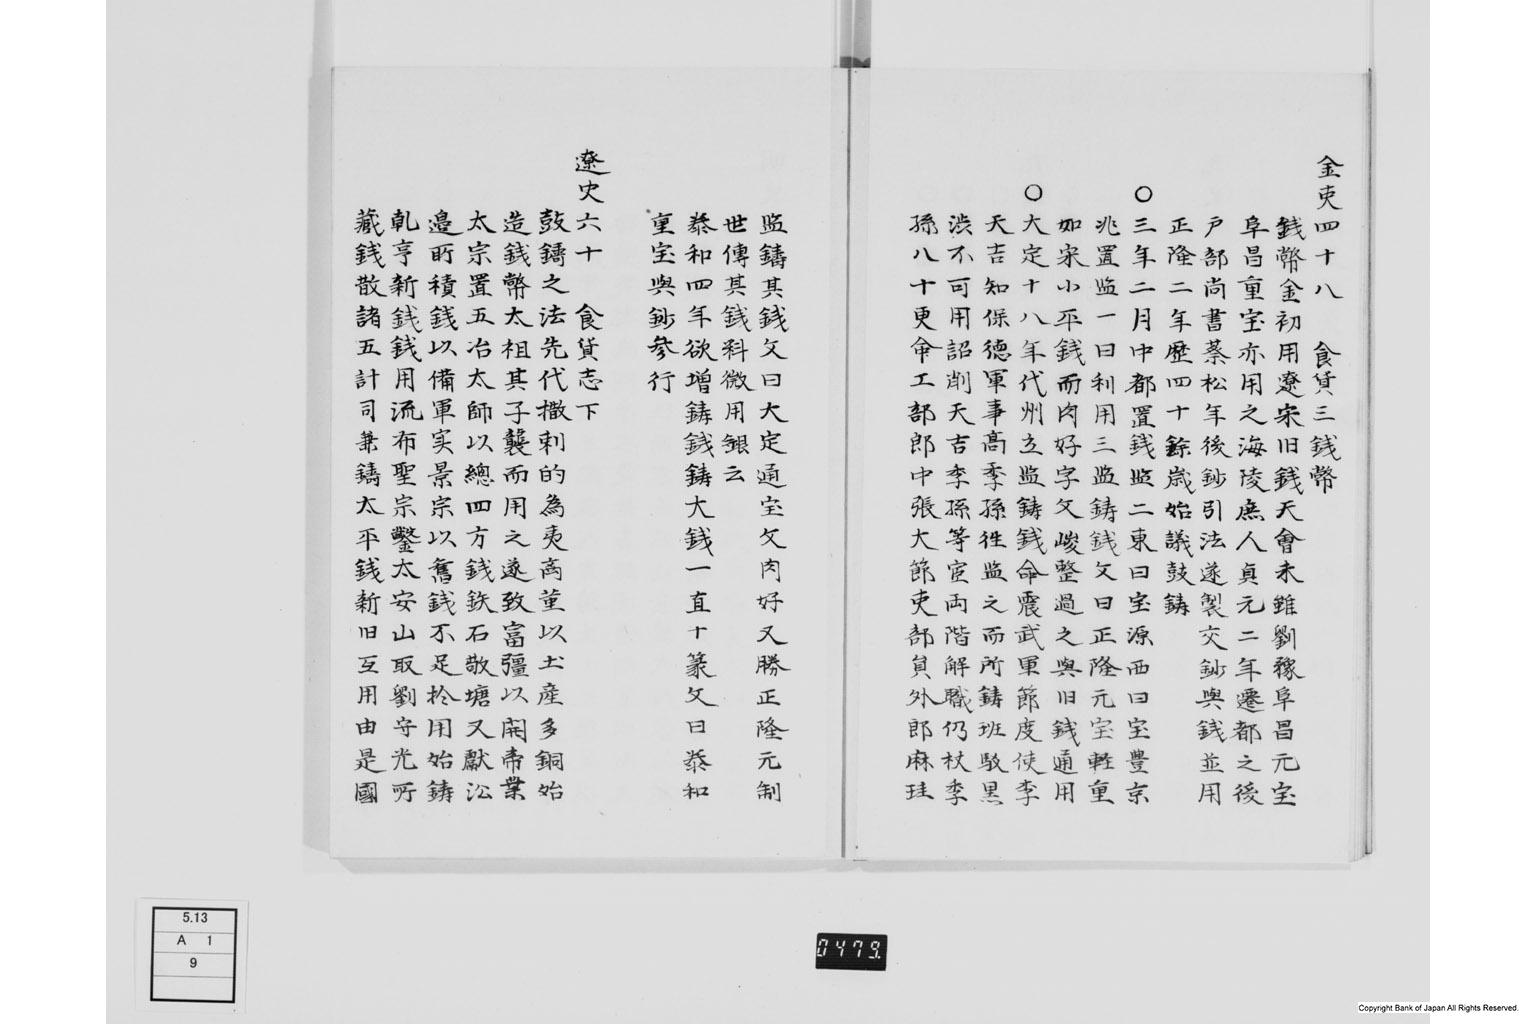 金吏四十八　食貨三銭幣
銭幣金初用遼宋旧銭天會末雖劉豫阜昌元宝
阜昌重宝亦用之海陵庶人貞元二年遷都之後
戸部尚書蔡松年後鈔引法遂製交鈔與銭並用
正隆二年歷四十餘歳始議鼓鋳
○三年二月中都置銭監二東曰宝源西曰宝豊京
兆置監一曰利用三監鋳銭文曰正隆元宝軽重
如宋小平銭而肉好字文峻整過之與旧銭通用
○大定十八年代州立監鋳銭命震武軍節度使李
天吉知保德軍事高季孫徃監之而所鋳班駁黒
渋不可用詔削天吉李孫等官両階解職仍杖季
孫八十更命工部郎中張大節吏部員外郎麻珪
監鑄其銭文曰大定通宝文肉好又勝正隆元制
世傳其銭料微用銀云
泰和四年欲增鋳銭鋳大銭一直十篆文曰泰和
重宝與鈔參行
遼史六十　食貨志下
鼓鑄之法先代撒剌的為夷离菫以土産多銅始
造銭幣太祖其子襲而用之遂致富彊以開帝業
太宗置五冶太師以總四方銭鉄石敬塘又獻沿
邉所積銭以備軍実景宗以舊銭不足於用始鋳
乹亨新銭銭用流布聖宗鑿太安山取劉守光所
藏銭散諸五計司兼鑄太平銭新旧互用由是國
5.13
A 1
9
0479.
Copyright Bank of Japan All Rights Reserved.